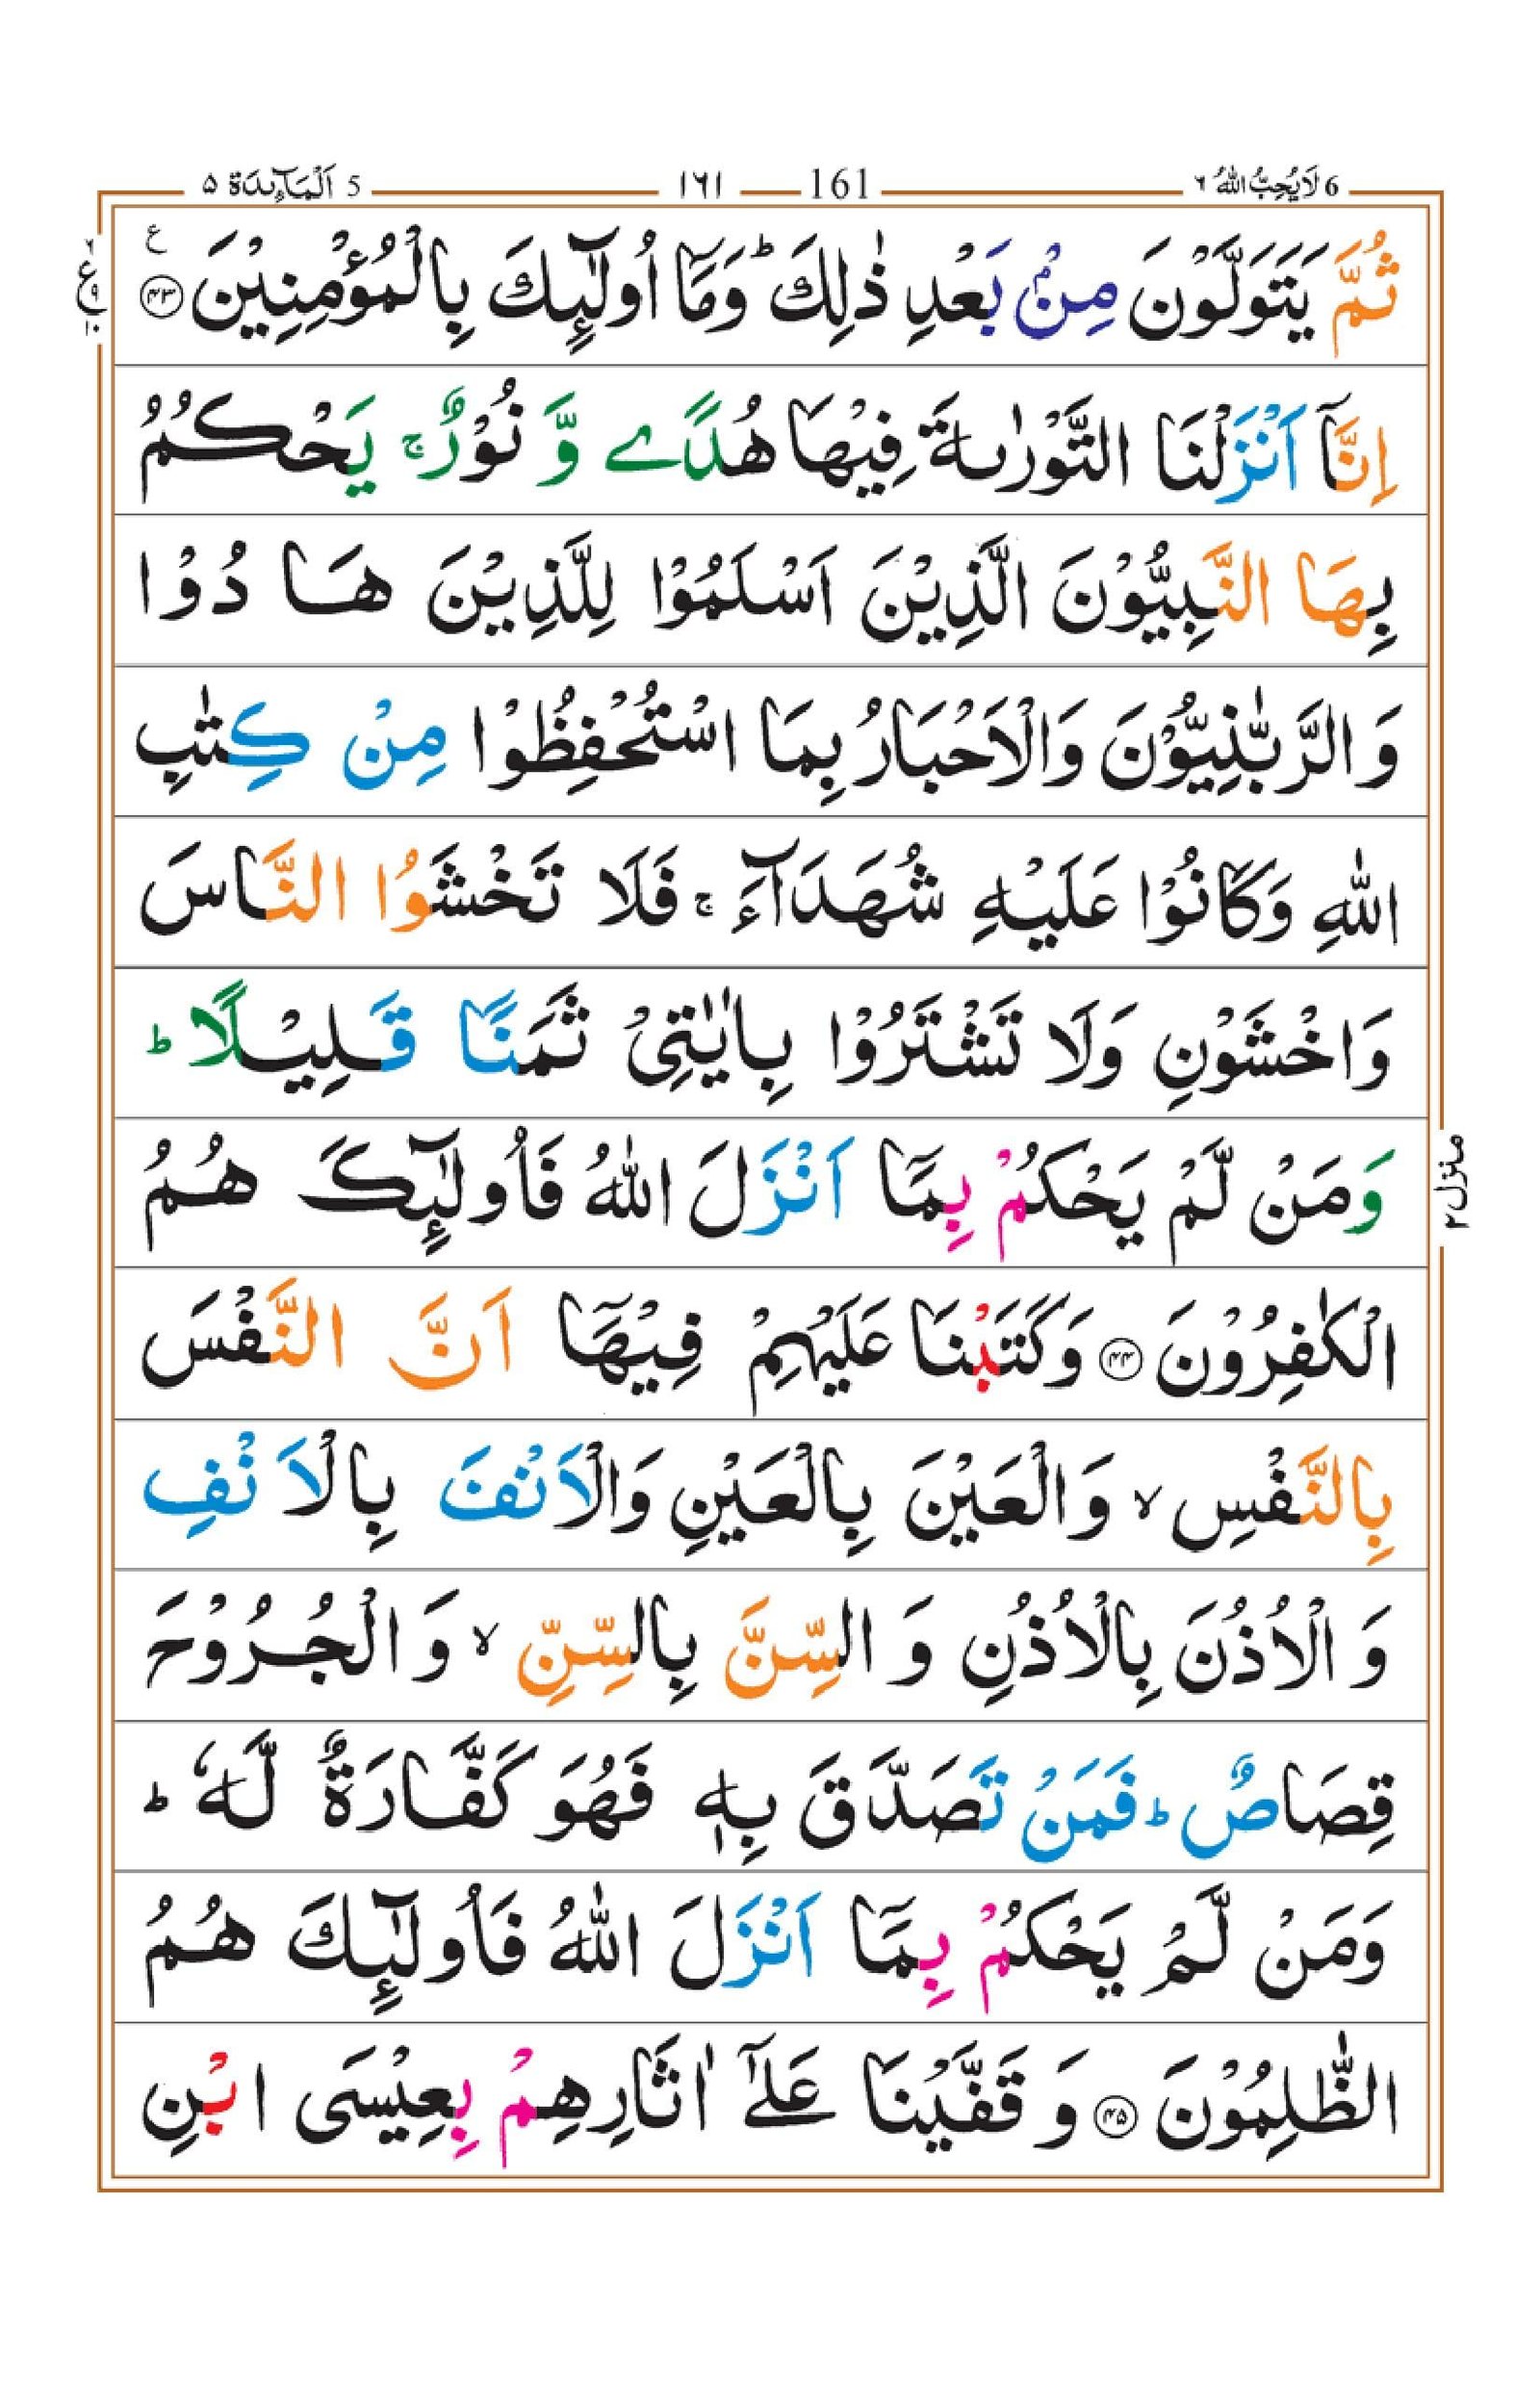 6 لَا يُحِبُّ اللهُ ٦ 161 ١٦١ 5 اَلْمَآئِدَة ۵
ثُمَّ يَتَوَلَّوْنَ مِنْۢ بَعْدِ ذٰلِكَ ؕ وَمَاۤ اُولٰٓئِكَ بِالْمُؤْمِنِيْنَ ﴿۴۳﴾ ع
اِنَّاۤ اَنْزَلْنَا التَّوْرٰىةَ فِيْهَا هُدًى وَّ نُوْرٌ ۚ يَحْكُمُ
بِهَا النَّبِيُّوْنَ الَّذِيْنَ اَسْلَمُوْا لِلَّذِيْنَ هَا دُوْا
وَ الرَّبّٰنِيُّوْنَ وَالْاَحْبَارُ بِمَا اسْتُحْفِظُوْا مِنْ كِتٰبِ
اللهِ وَكَانُوْا عَلَيْهِ شُهَدَآءَ ۚ فَلَا تَخْشَوُا النَّاسَ
وَاخْشَوْنِ وَلَا تَشْتَرُوْا بِاٰيٰتِيْ ثَمَنًا قَلِيْلًا ؕ
وَمَنْ لَّمْ يَحْكُمْ بِمَاۤ اَنْزَلَ اللهُ فَاُولٰٓئِكَ هُمُ
الْكٰفِرُوْنَ ﴿۴۴﴾ وَكَتَبْنَا عَلَيْهِمْ فِيْهَاۤ اَنَّ النَّفْسَ
بِالنَّفْسِ ۙ وَالْعَيْنَ بِالْعَيْنِ وَالْاَنْفَ بِالْاَنْفِ
وَ الْاُذُنَ بِالْاُذُنِ وَ السِّنَّ بِالسِّنِّ ۙ وَ الْجُرُوْحَ
قِصَاصٌ ؕ فَمَنْ تَصَدَّقَ بِهٖ فَهُوَ كَفَّارَةٌ لَّهٗ ؕ
وَمَنْ لَّمْ يَحْكُمْ بِمَاۤ اَنْزَلَ اللهُ فَاُولٰٓئِكَ هُمُ
الظّٰلِمُوْنَ ﴿۴۵﴾ وَ قَفَّيْنَا عَلٰۤى اٰثَارِهِمْ بِعِيْسَى ابْنِ
منزل ۲